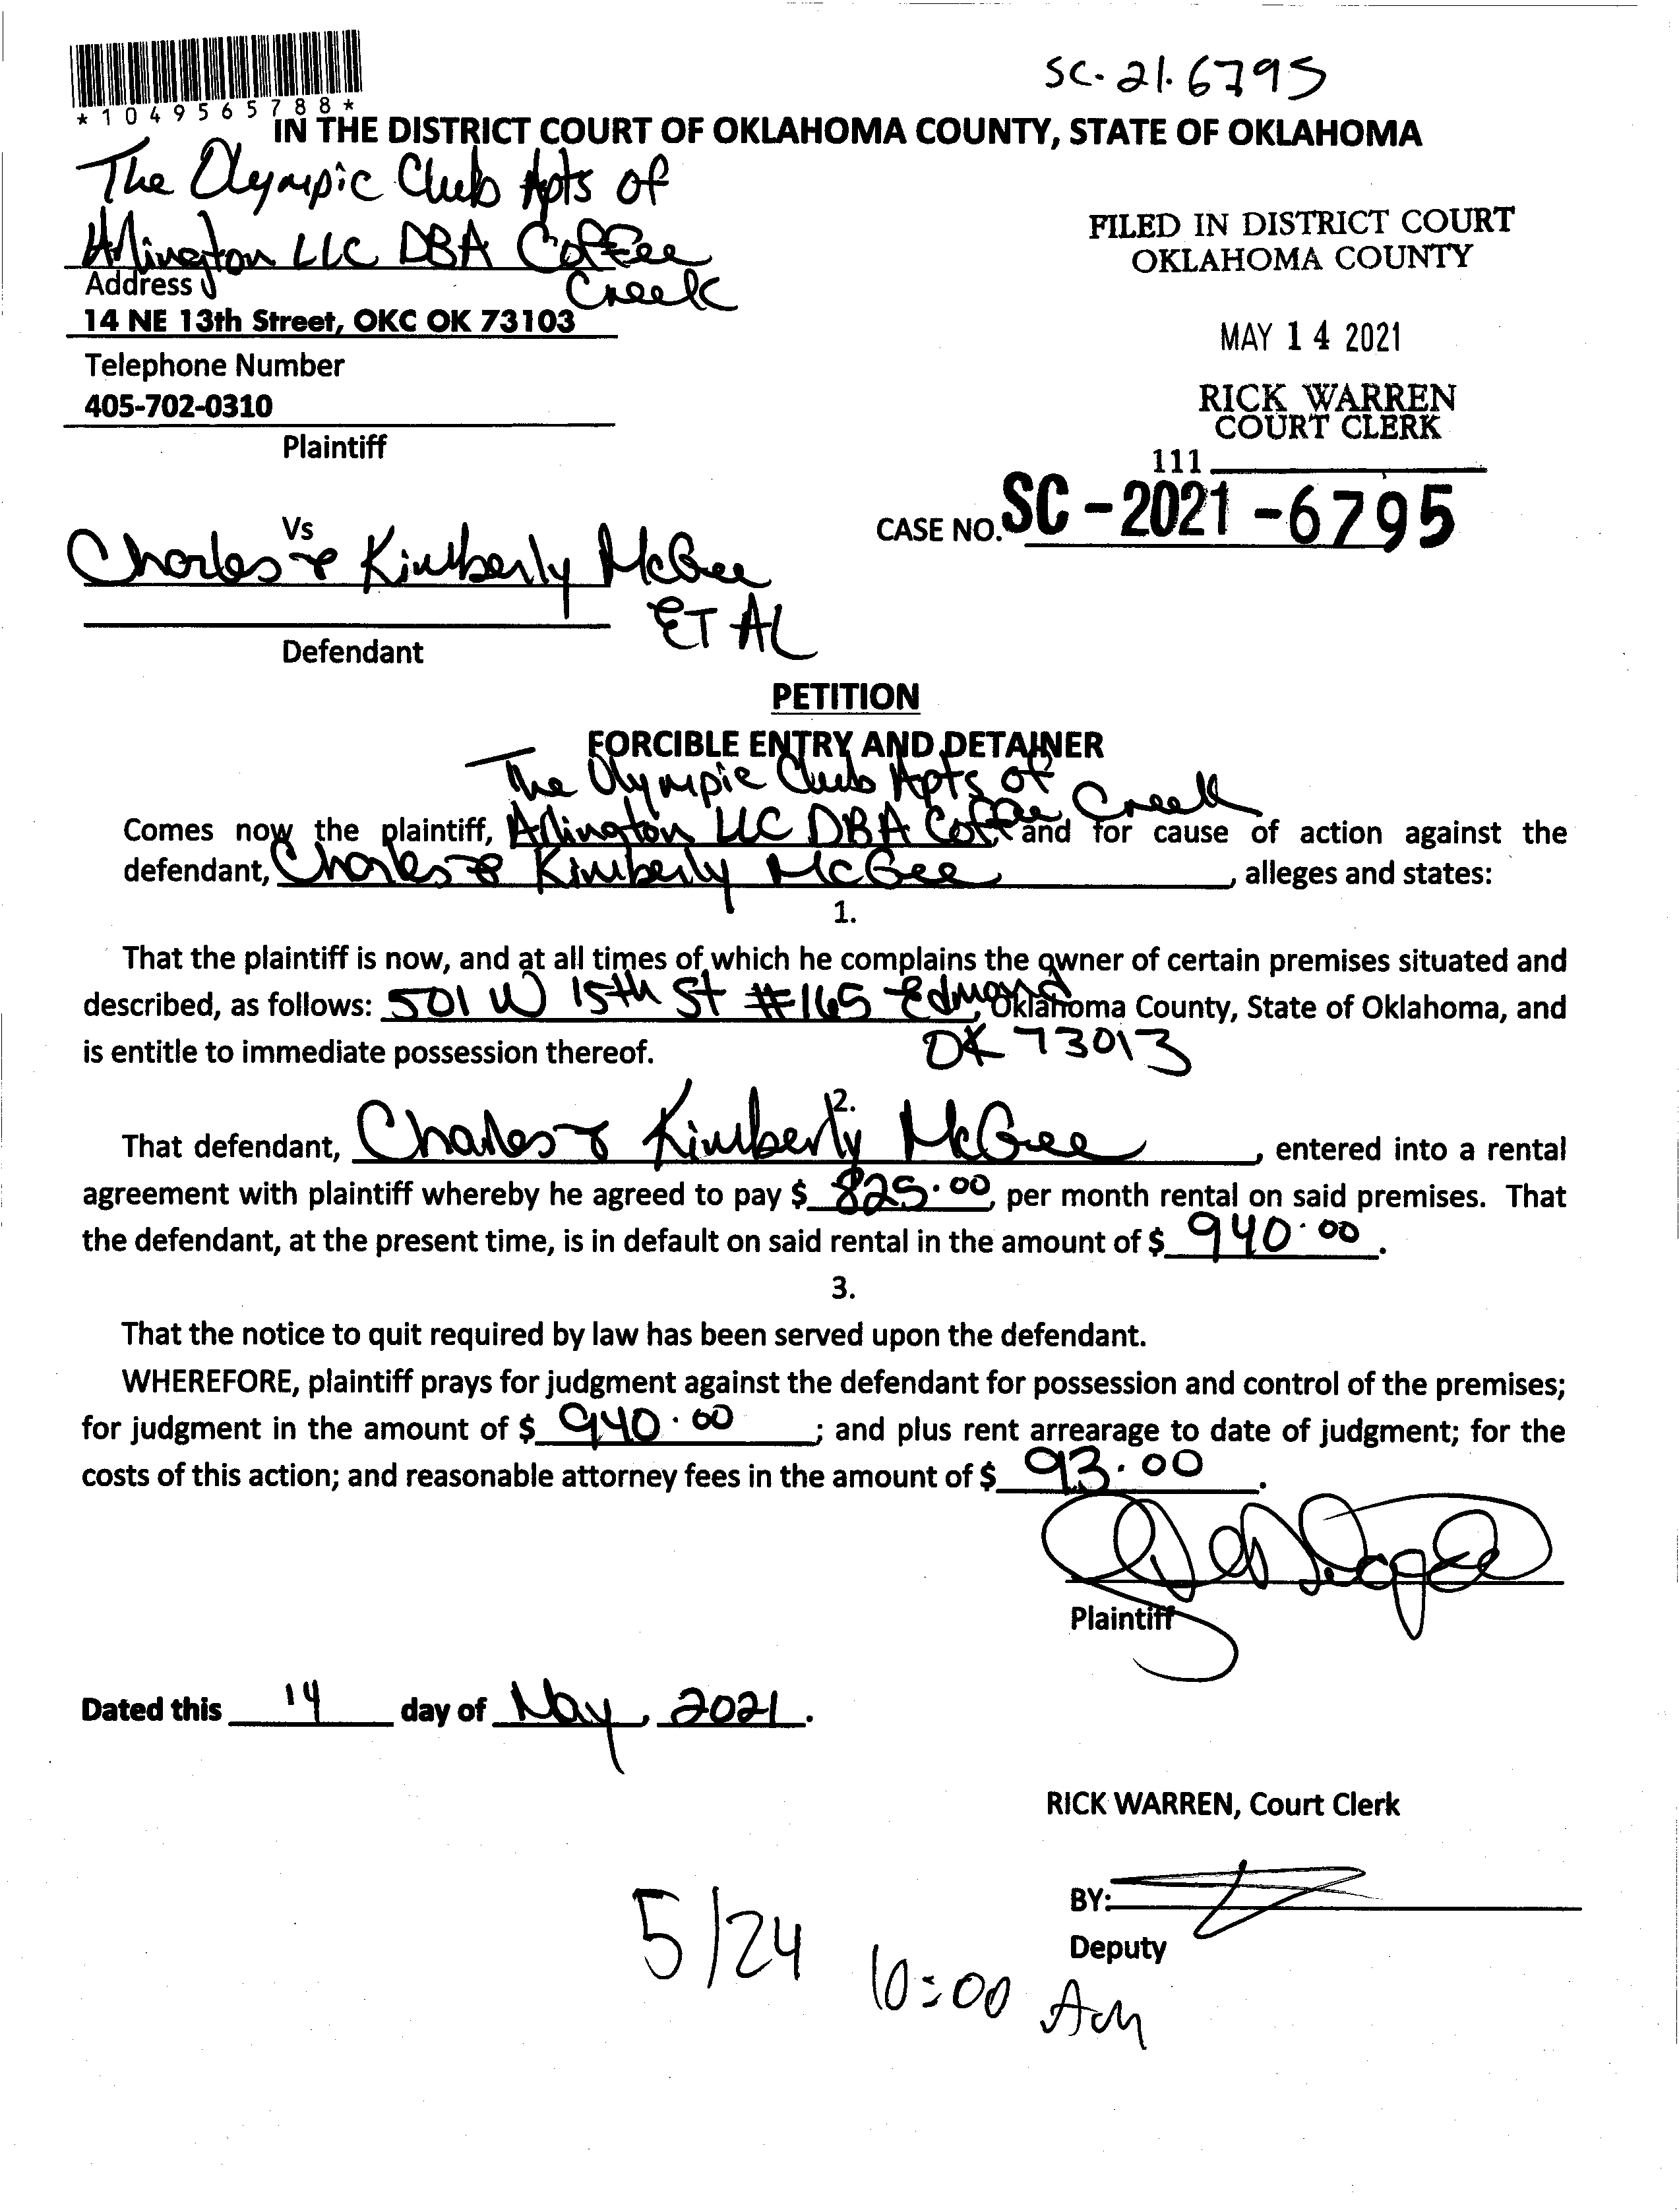 SC-21-6795
*1049565788*
IN THE DISTRICT COURT OF OKLAHOMA COUNTY, STATE OF OKLAHOMA
The Olympic Club Apts of
Arlington LLC DBA Coffee
Creek
Address
14 NE 13th Street, OKC OK 73103
Telephone Number
405-702-0310
Plaintiff
FILED IN DISTRICT COURT
OKLAHOMA COUNTY
MAY 14 2021
RICK WARREN
COURT CLERK
111
CASE NO. SC-2021-6795
Vs
Charles & Kimberly McGee
ET AL
Defendant
PETITION
FORCIBLE ENTRY AND DETAINER
The Olympic Club Apts of
Comes now the plaintiff, Arlington LLC DBA Coffee Creek, and for cause of action against the
defendant, Charles & Kimberly McGee, alleges and states:
1.
That the plaintiff is now, and at all times of which he complains the owner of certain premises situated and
described, as follows: 501 W 15th St #165 Edmond, Oklahoma County, State of Oklahoma, and
is entitle to immediate possession thereof. OK 73013
2.
That defendant, Charles & Kimberly McGee, entered into a rental
agreement with plaintiff whereby he agreed to pay $ 825.00, per month rental on said premises. That
the defendant, at the present time, is in default on said rental in the amount of $ 940.00.
3.
That the notice to quit required by law has been served upon the defendant.
WHEREFORE, plaintiff prays for judgment against the defendant for possession and control of the premises;
for judgment in the amount of $ 940.00; and plus rent arrearage to date of judgment; for the
costs of this action; and reasonable attorney fees in the amount of $ 93.00.
Plaintiff
Dated this 14 day of May, 2021.
RICK WARREN, Court Clerk
BY:
Deputy
5/24 10:00 AM